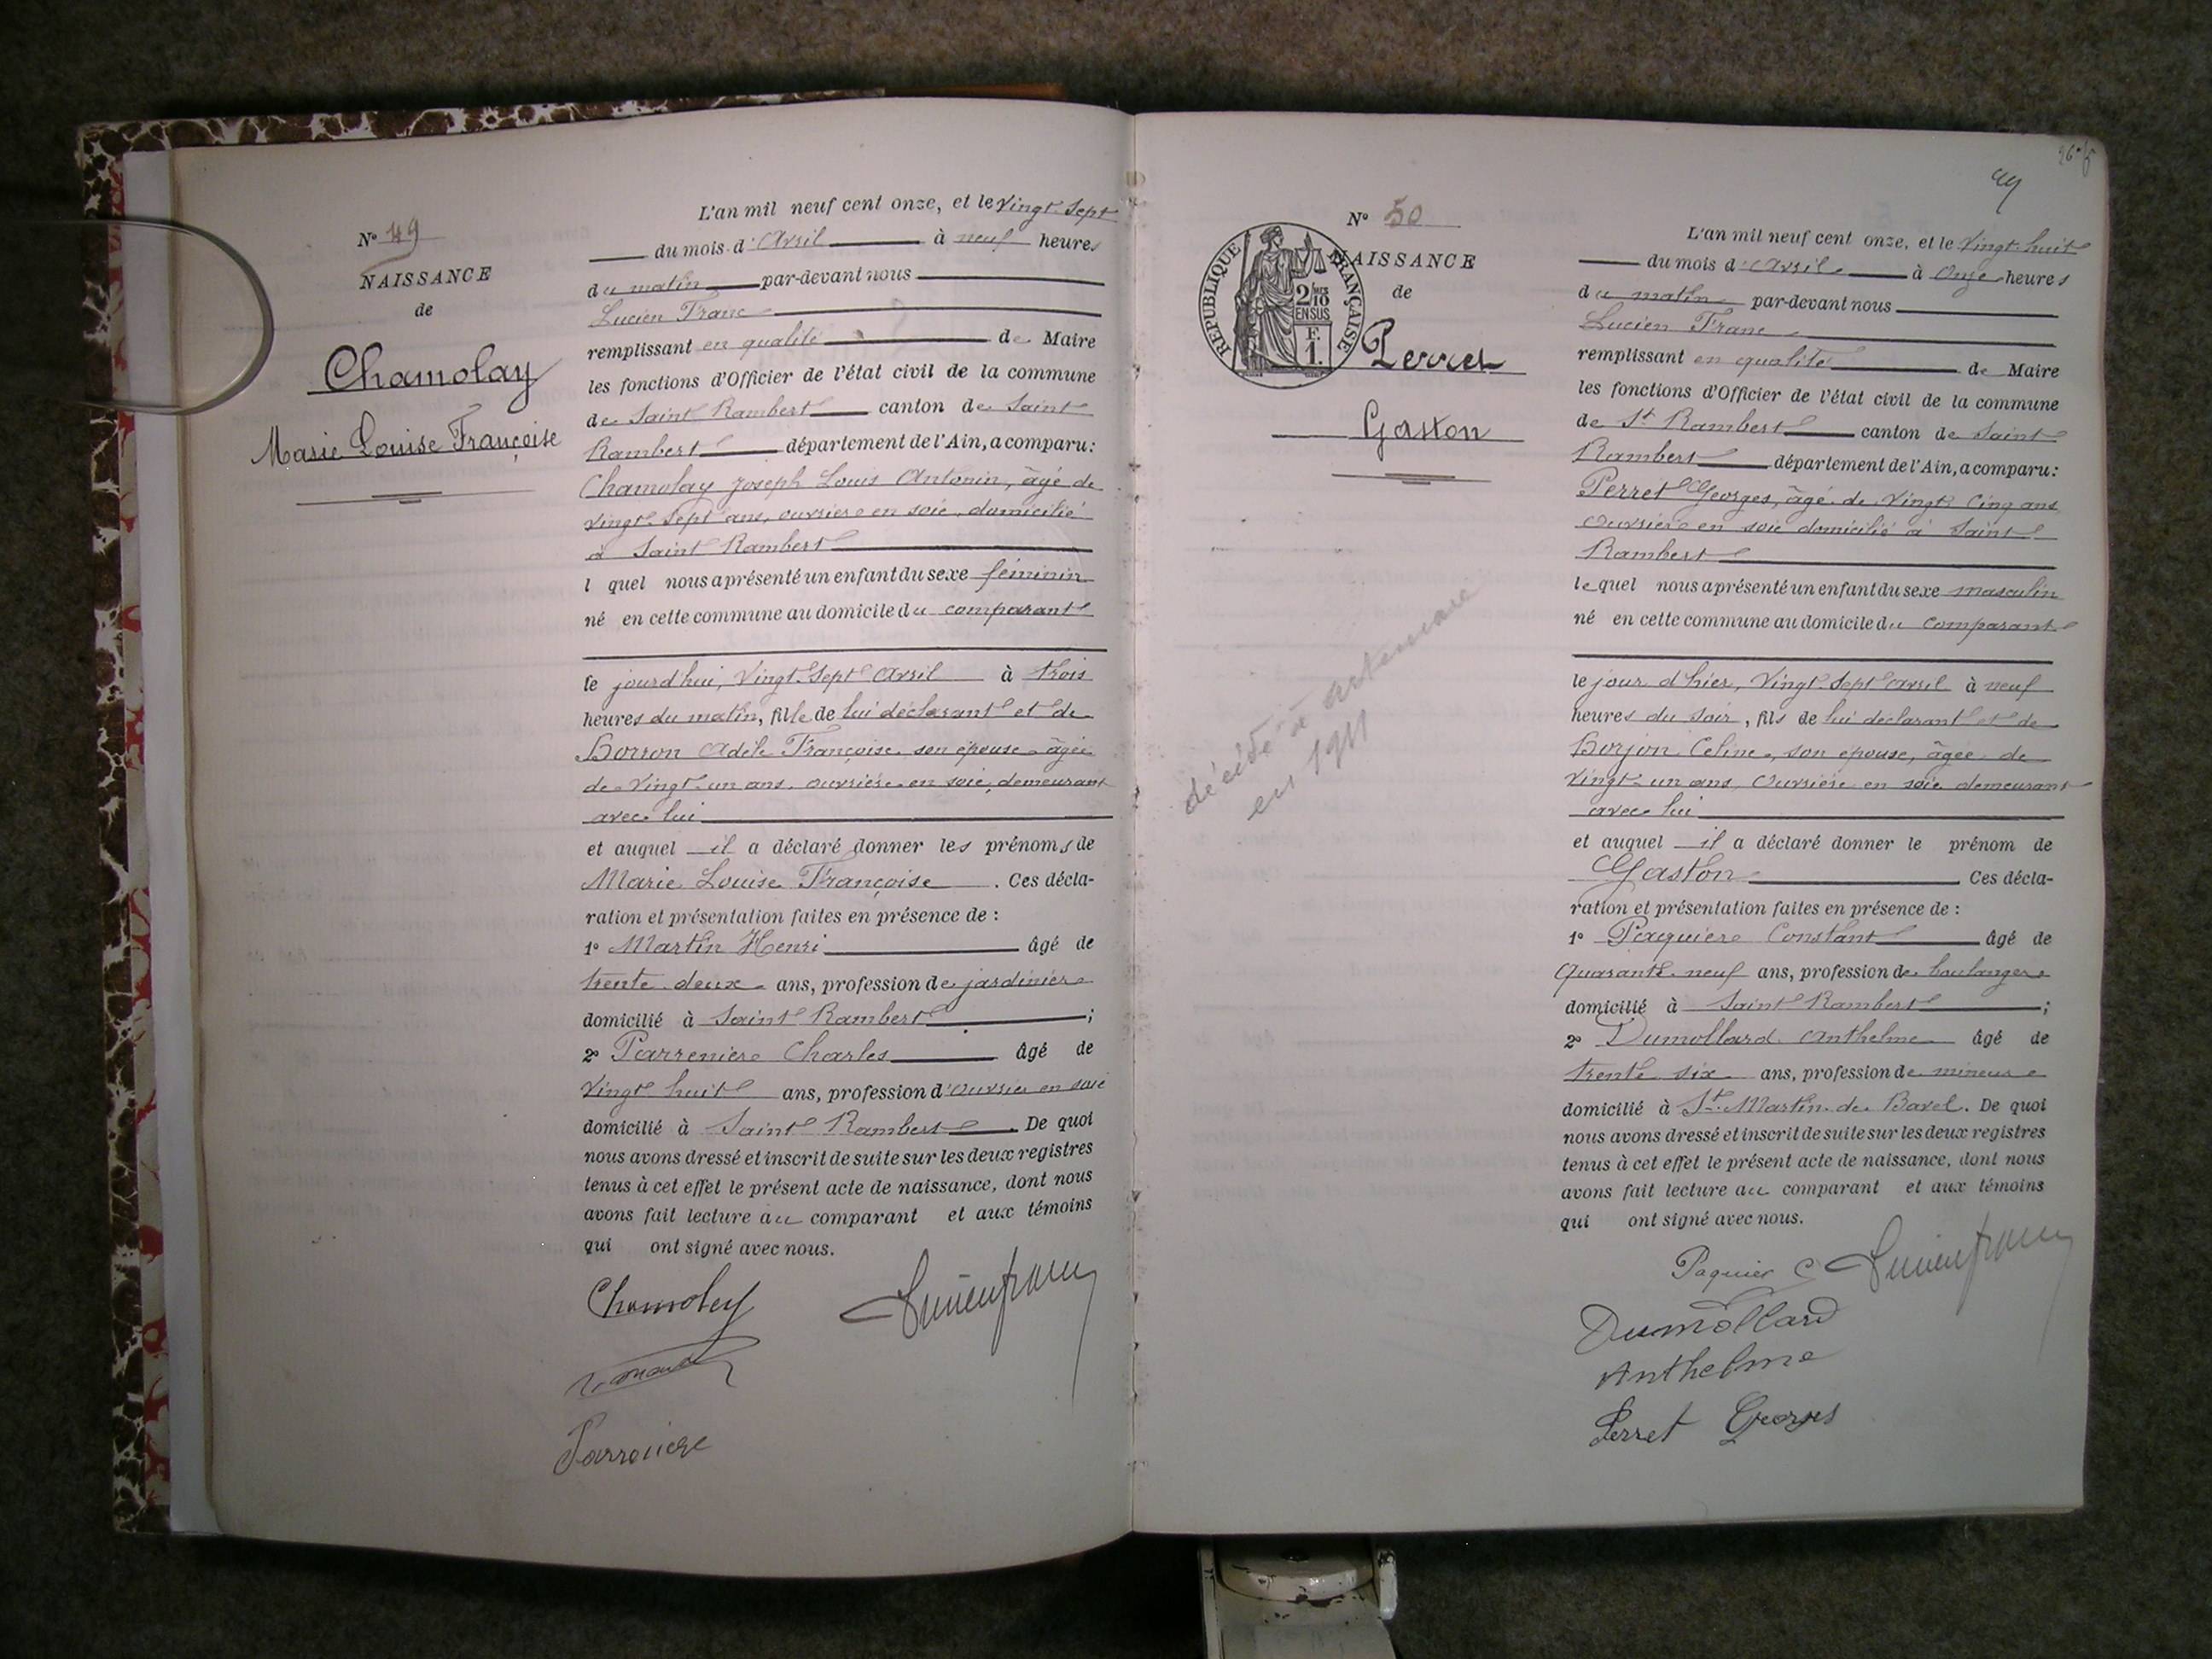 N° 49
NAISSANCE
de
Chamolay
Marie Louise Françoise
L'an mil neuf cent onze, et le Vingt-Sept
du mois d'Avril à neuf heures
du matin par-devant nous
Lucien Franc
remplissant en qualité de Maire
les fonctions d'Officier de l'état civil de la commune
de Saint Rambert canton de Saint
Rambert département de l'Ain, a comparu:
Chamolay Joseph Louis Antonin, âgé de
vingt-sept ans, ouvrier en soie, domicilié
à Saint Rambert
l quel nous a présenté un enfant du sexe féminin
né en cette commune au domicile du comparant
le jourd'hui, Vingt-Sept Avril à trois
heures du matin, fille de lui déclarant et de
Borron Adèle Françoise son épouse âgée
de Vingt-un ans, ouvrière en soie, demeurant
avec lui
et auquel il a déclaré donner les prénoms de
Marie Louise Françoise. Ces décla-
ration et présentation faites en présence de :
1° Martin Henri âgé de
trente deux ans, profession de jardinier
domicilié à Saint Rambert ;
2° Parrenière Charles âgé de
Vingt huit ans, profession d'ouvrier en soie
domicilié à Saint Rambert. De quoi
nous avons dressé et inscrit de suite sur les deux registres
tenus à cet effet le présent acte de naissance, dont nous
avons fait lecture au comparant et aux témoins
qui ont signé avec nous.
Chamolay
Lucien franc
Parroniere
26 f
N° 50
RÉPUBLIQUE FRANÇAISE
2/10 EN SUS
F. 1.
NAISSANCE
de
Perret
Gaston
décédé à
en 1911
L'an mil neuf cent onze, et le Vingt-huit
du mois d'Avril à Onze heures
du matin par-devant nous
Lucien Franc
remplissant en qualité de Maire
les fonctions d'Officier de l'état civil de la commune
de St Rambert canton de Saint
Rambert département de l'Ain, a comparu:
Perret Georges, âgé de Vingt Cinq ans
Ouvrier en soie domicilié à Saint
Rambert
lequel nous a présenté un enfant du sexe masculin
né en cette commune au domicile du Comparant
le jour d'hier, Vingt-Sept avril à neuf
heures du soir, fils de lui déclarant et de
Borjon Celine, son épouse, âgée de
Vingt-un ans, Ouvrière en soie demeurant
avec lui
et auquel il a déclaré donner le prénom de
Gaston Ces décla-
ration et présentation faites en présence de :
1° Paquier Constant âgé de
Quarante-neuf ans, profession de boulanger
domicilié à Saint Rambert ;
2° Dumollard Anthelme âgé de
trente six ans, profession de mineur
domicilié à St. Martin-de-Bavel. De quoi
nous avons dressé et inscrit de suite sur les deux registres
tenus à cet effet le présent acte de naissance, dont nous
avons fait lecture au comparant et aux témoins
qui ont signé avec nous.
Paquier C
Lucien franc
Dumollard
Anthelme
Perret Georges